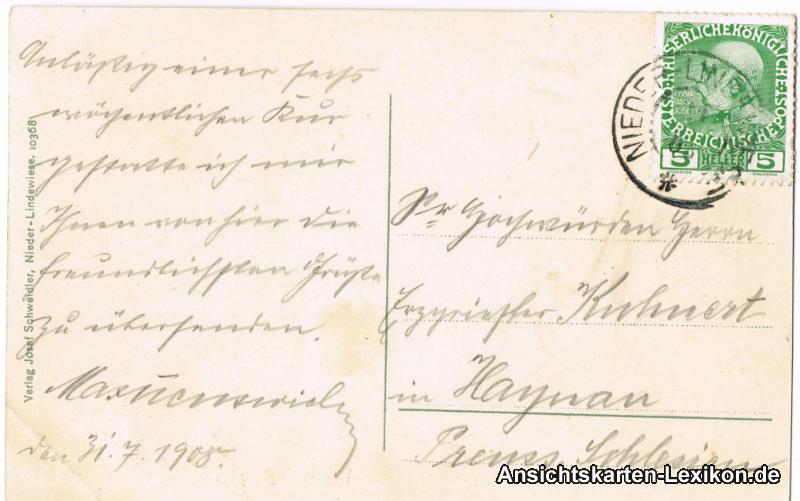 Anläßig einer sechs
wöchentlichen Kur
gestatte ich mir
Ihnen von hier die
freundlichsten Grüße
zu übersenden.
den 31. 7. 1908.
Verlag Josef Schweidler, Nieder-Lindewiese. 10368
KAISERLICHEKÖNIGLICHE
ÖSTERREICHISCHE POST
FRAN
CISCVS
JOSEPH I
5 HELLER 5
NIEDER LINDEWIESE
Sr Hochwürden Herrn
Erzpriester Kuhnert
in Haynau
Preuss. Schlesien
Ansichtskarten-Lexikon.de